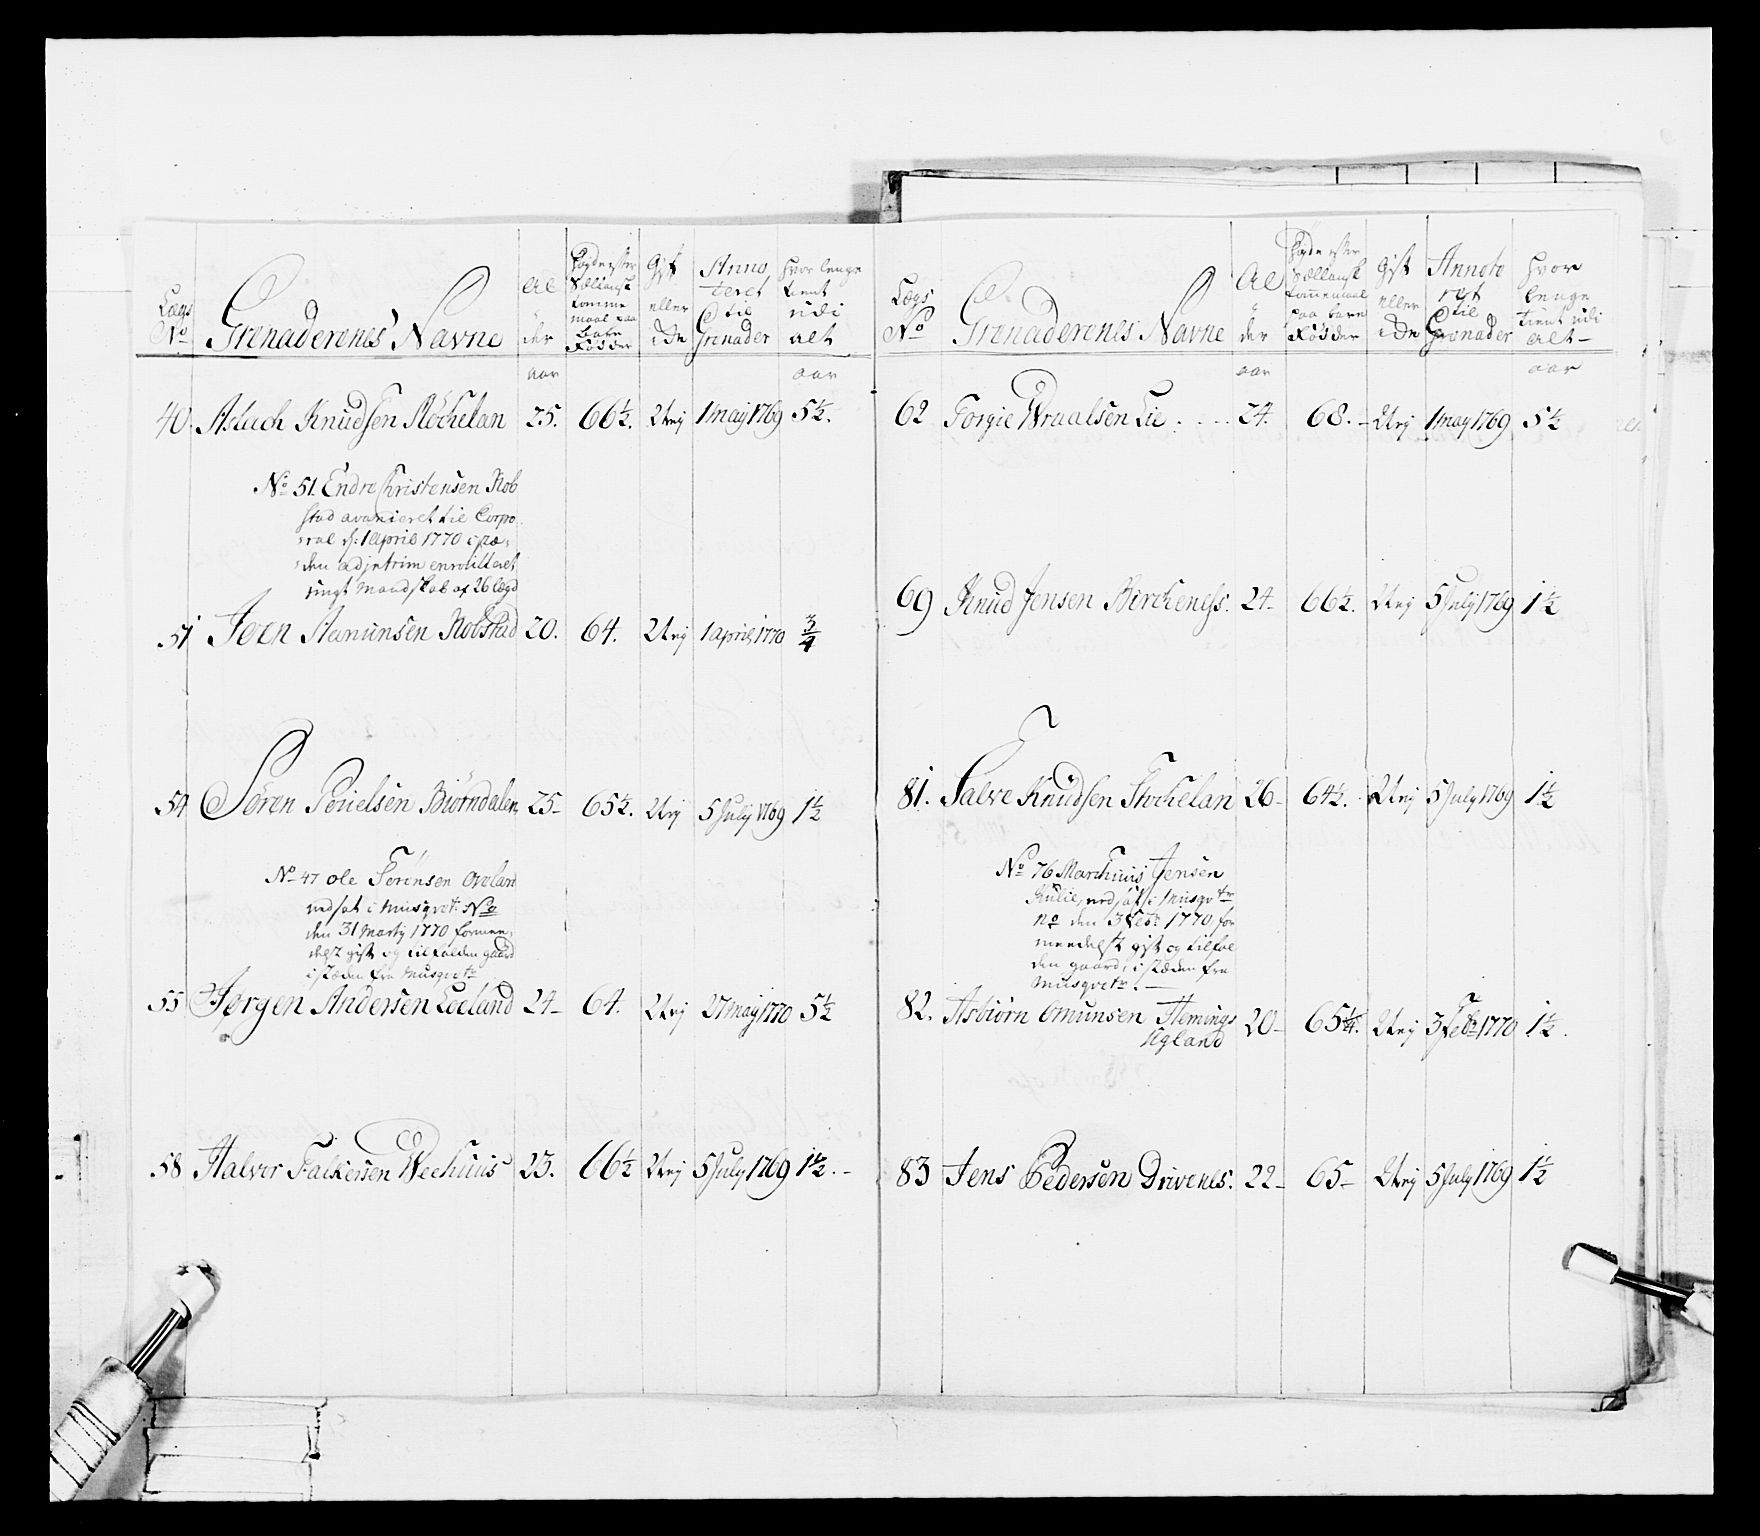 Lægs
No
Grenaderenes Navne
Al
der
Høyde efter
Siællansk
Tomme
maal paa
Bare
Fødder
Gift
eller
Ide
Anno
teret
til
Grenader
hvor lenge
tient
udi
alt
aar
aar
40. Aslach Knudsen Røchelan 25. 66½. Uvij 1 maij 1769 5½.
No 51. Endre Christensen Rob
stad avancieret til Corpo
ral d: 1 april 1770
den adjntrim enroulleret
ungt Mandskab af 26 lægd
51 Joen Aamunsen Robstad 20. 64. Uvij 1 april 1770 ¾
54 Søren Poulsen Biørndalen 25 65½. Uvij 5 July 1769 1½
No 47 ole Sørensen Oveland
nedsat i Musqvet: No
den 31 Marty 1770 formee,
delst gift og tilfalden gaard
i stæden fra Musqvetr
55 Jørgen Andersen Loeland 24 64. Uvij 27 maij 1770 5½
58 Halvor Falkersen Weehuus 23. 66½ Uvij 5 July 1769 1½.
Lægs
No
Grenaderenes Navne
Al
der
Høyde efter
Siællansk
Tommemaal
paa bare
Fødder
Gift
eller
ide
Annote
ret
til
Grenader
hvor
lenge
tient udi
alt
aar
aar
62 Torgie Wraalsen Lie .... 24. 68. Uvij 1 may 1769 5½
69 Knud Jensen Birchenes. 24 66½. Uvij 5 July 1769 1½
81. Salve Knudsen Stochelan 26 64½. Uvij 5 July 1769 1½
No 76 Marchuus Jensen
Kulie, nedsat i Musqvetr
No den 3 Febr: 1770, for
meedelst gift og tilfal
den gaard, i stæden fra
Musqvetr.
82. Asbiørn Omunsen Flemings 20 65¼. Uvij 3 Febr 1770 1½.
Agland
83 Jens Pedersen Drivenes. 22 65 Uvij 5 July 1769 1½